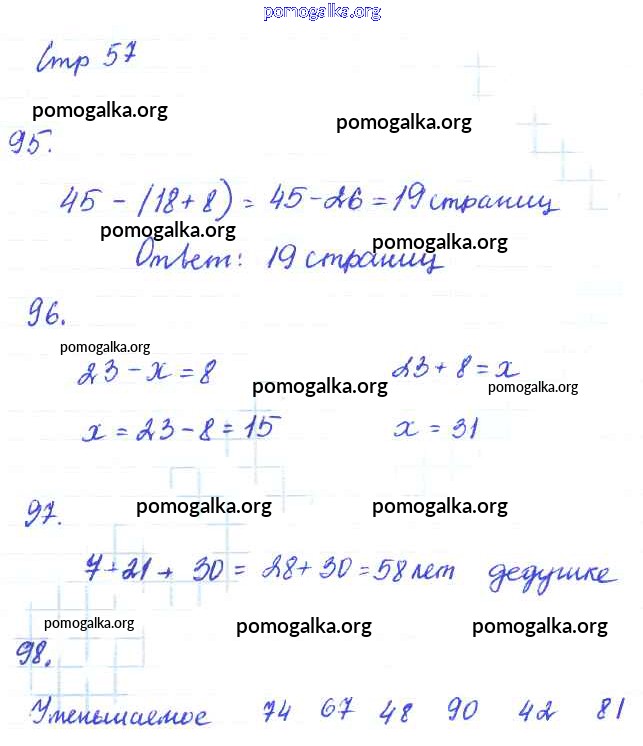 pomogalka.org
Стр 57
pomogalka.org
pomogalka.org
95.
45 - (18 + 8) = 45 - 26 = 19 страниц
pomogalka.org
pomogalka.org
Ответ: 19 страниц
96.
pomogalka.org
23 - x = 8 23 + 8 = x
pomogalka.org
pomogalka.org
x = 23 - 8 = 15 x = 31
97.
pomogalka.org
pomogalka.org
7 + 21 + 30 = 28 + 30 = 58 лет дедушке
pomogalka.org
pomogalka.org
pomogalka.org
98.
Уменьшаемое 74 67 48 90 42 81